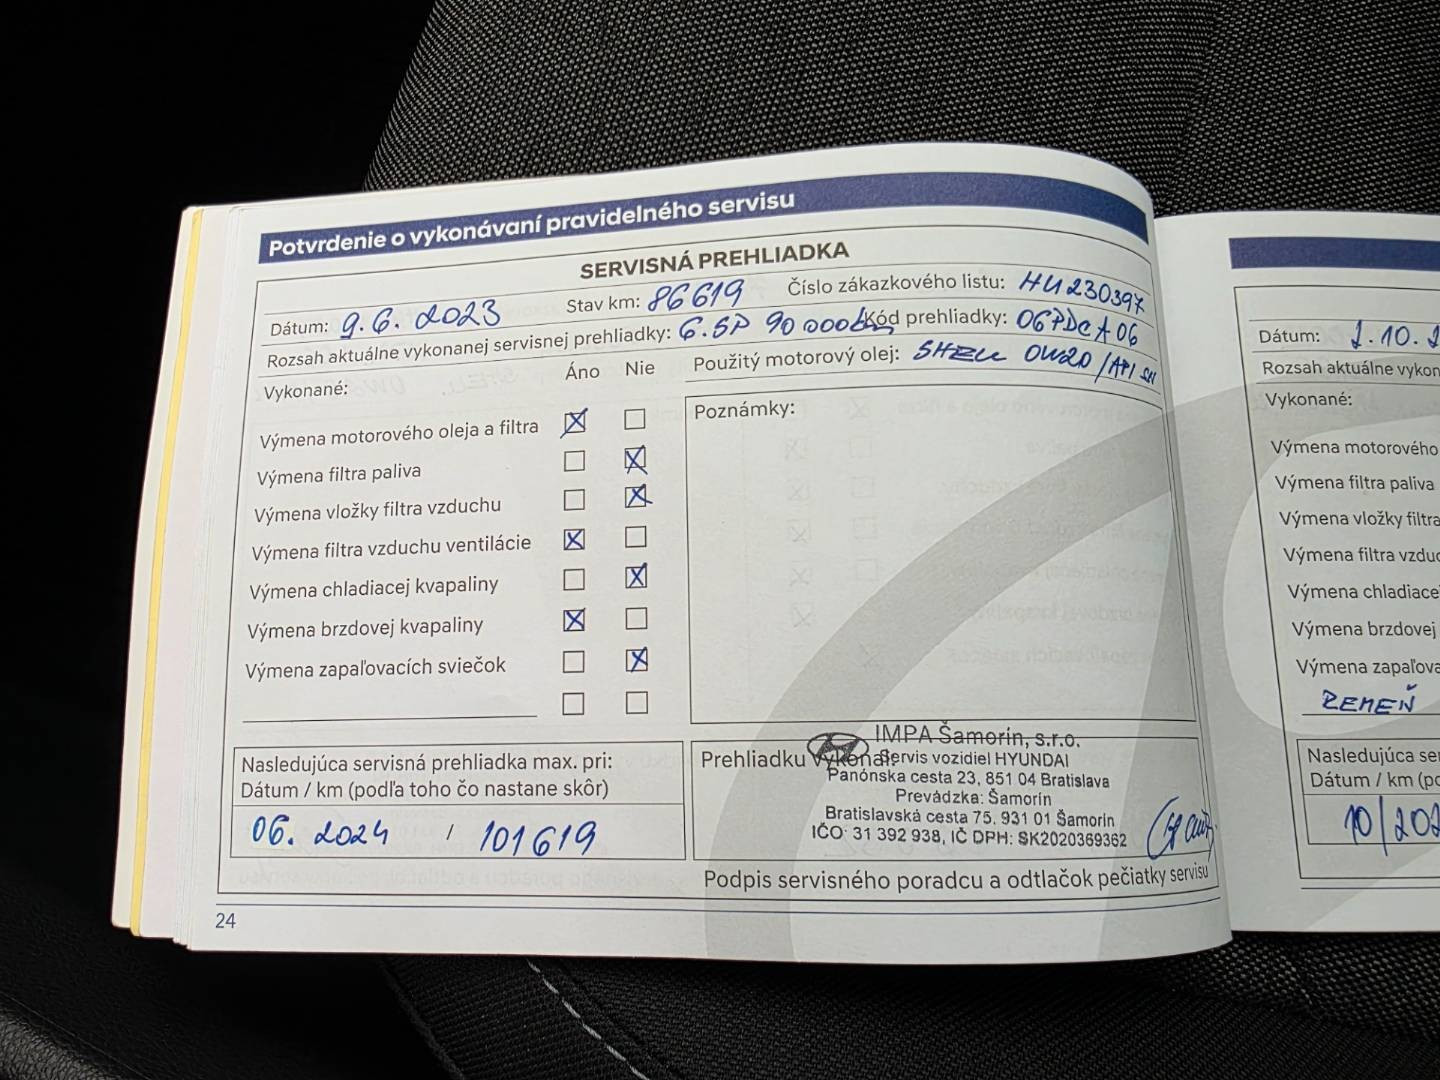 Potvrdenie o vykonávaní pravidelného servisu
SERVISNÁ PREHLIADKA
Dátum: 9.6. 2023 Stav km: 86619 Číslo zákazkového listu: HU230397
Rozsah aktuálne vykonanej servisnej prehliadky: 6.SP 90 000km Kód prehliadky: 06PDCA06
Vykonané: Áno Nie Použitý motorový olej: SHELL 0W20 /API SN
Výmena motorového oleja a filtra
Výmena filtra paliva
Výmena vložky filtra vzduchu
Výmena filtra vzduchu ventilácie
Výmena chladiacej kvapaliny
Výmena brzdovej kvapaliny
Výmena zapaľovacích sviečok
Poznámky:
Nasledujúca servisná prehliadka max. pri:
Dátum / km (podľa toho čo nastane skôr)
06. 2024 / 101619
Prehliadku vykonal:
IMPA Šamorín, s.r.o.
Servis vozidiel HYUNDAI
Panónska cesta 23, 851 04 Bratislava
Prevádzka: Šamorín
Bratislavská cesta 75, 931 01 Šamorín
IČO: 31 392 938, IČ DPH: SK2020369362
Podpis servisného poradcu a odtlačok pečiatky servisu
24
Dátum: 2.10.2
Rozsah aktuálne vykon
Vykonané:
Výmena motorového
Výmena filtra paliva
Výmena vložky filtra
Výmena filtra vzduc
Výmena chladiace
Výmena brzdovej
Výmena zapaľova
REMEŇ
Nasledujúca se
Dátum / km (po
10/202